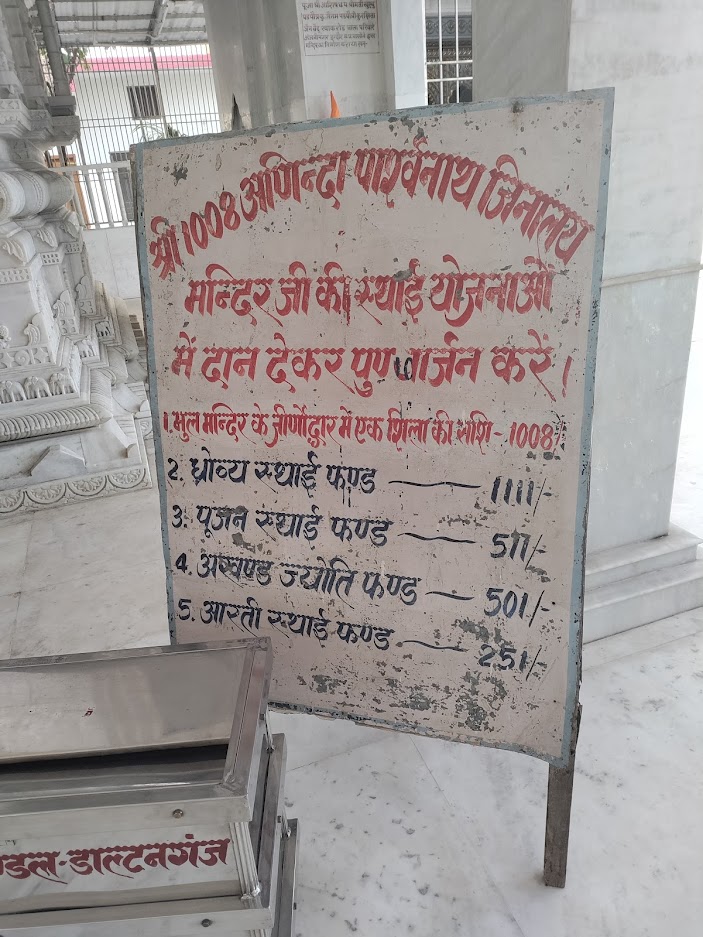 श्री 1008 अणिन्दा पार्श्वनाथ जिनालय
मन्दिर जी की स्थाई योजनाओं
में दान देकर पुण्यार्जन करें।
1. मुल मन्दिर के जीर्णोद्धार में एक शिला की राशि - 1008/-
2. ध्रोव्य स्थाई फण्ड — 1111/-
3. पूजन स्थाई फण्ड — 511/-
4. अखण्ड ज्योति फण्ड — 501/-
5. आरती स्थाई फण्ड — 251/-
ण्डल-डाल्टनगंज